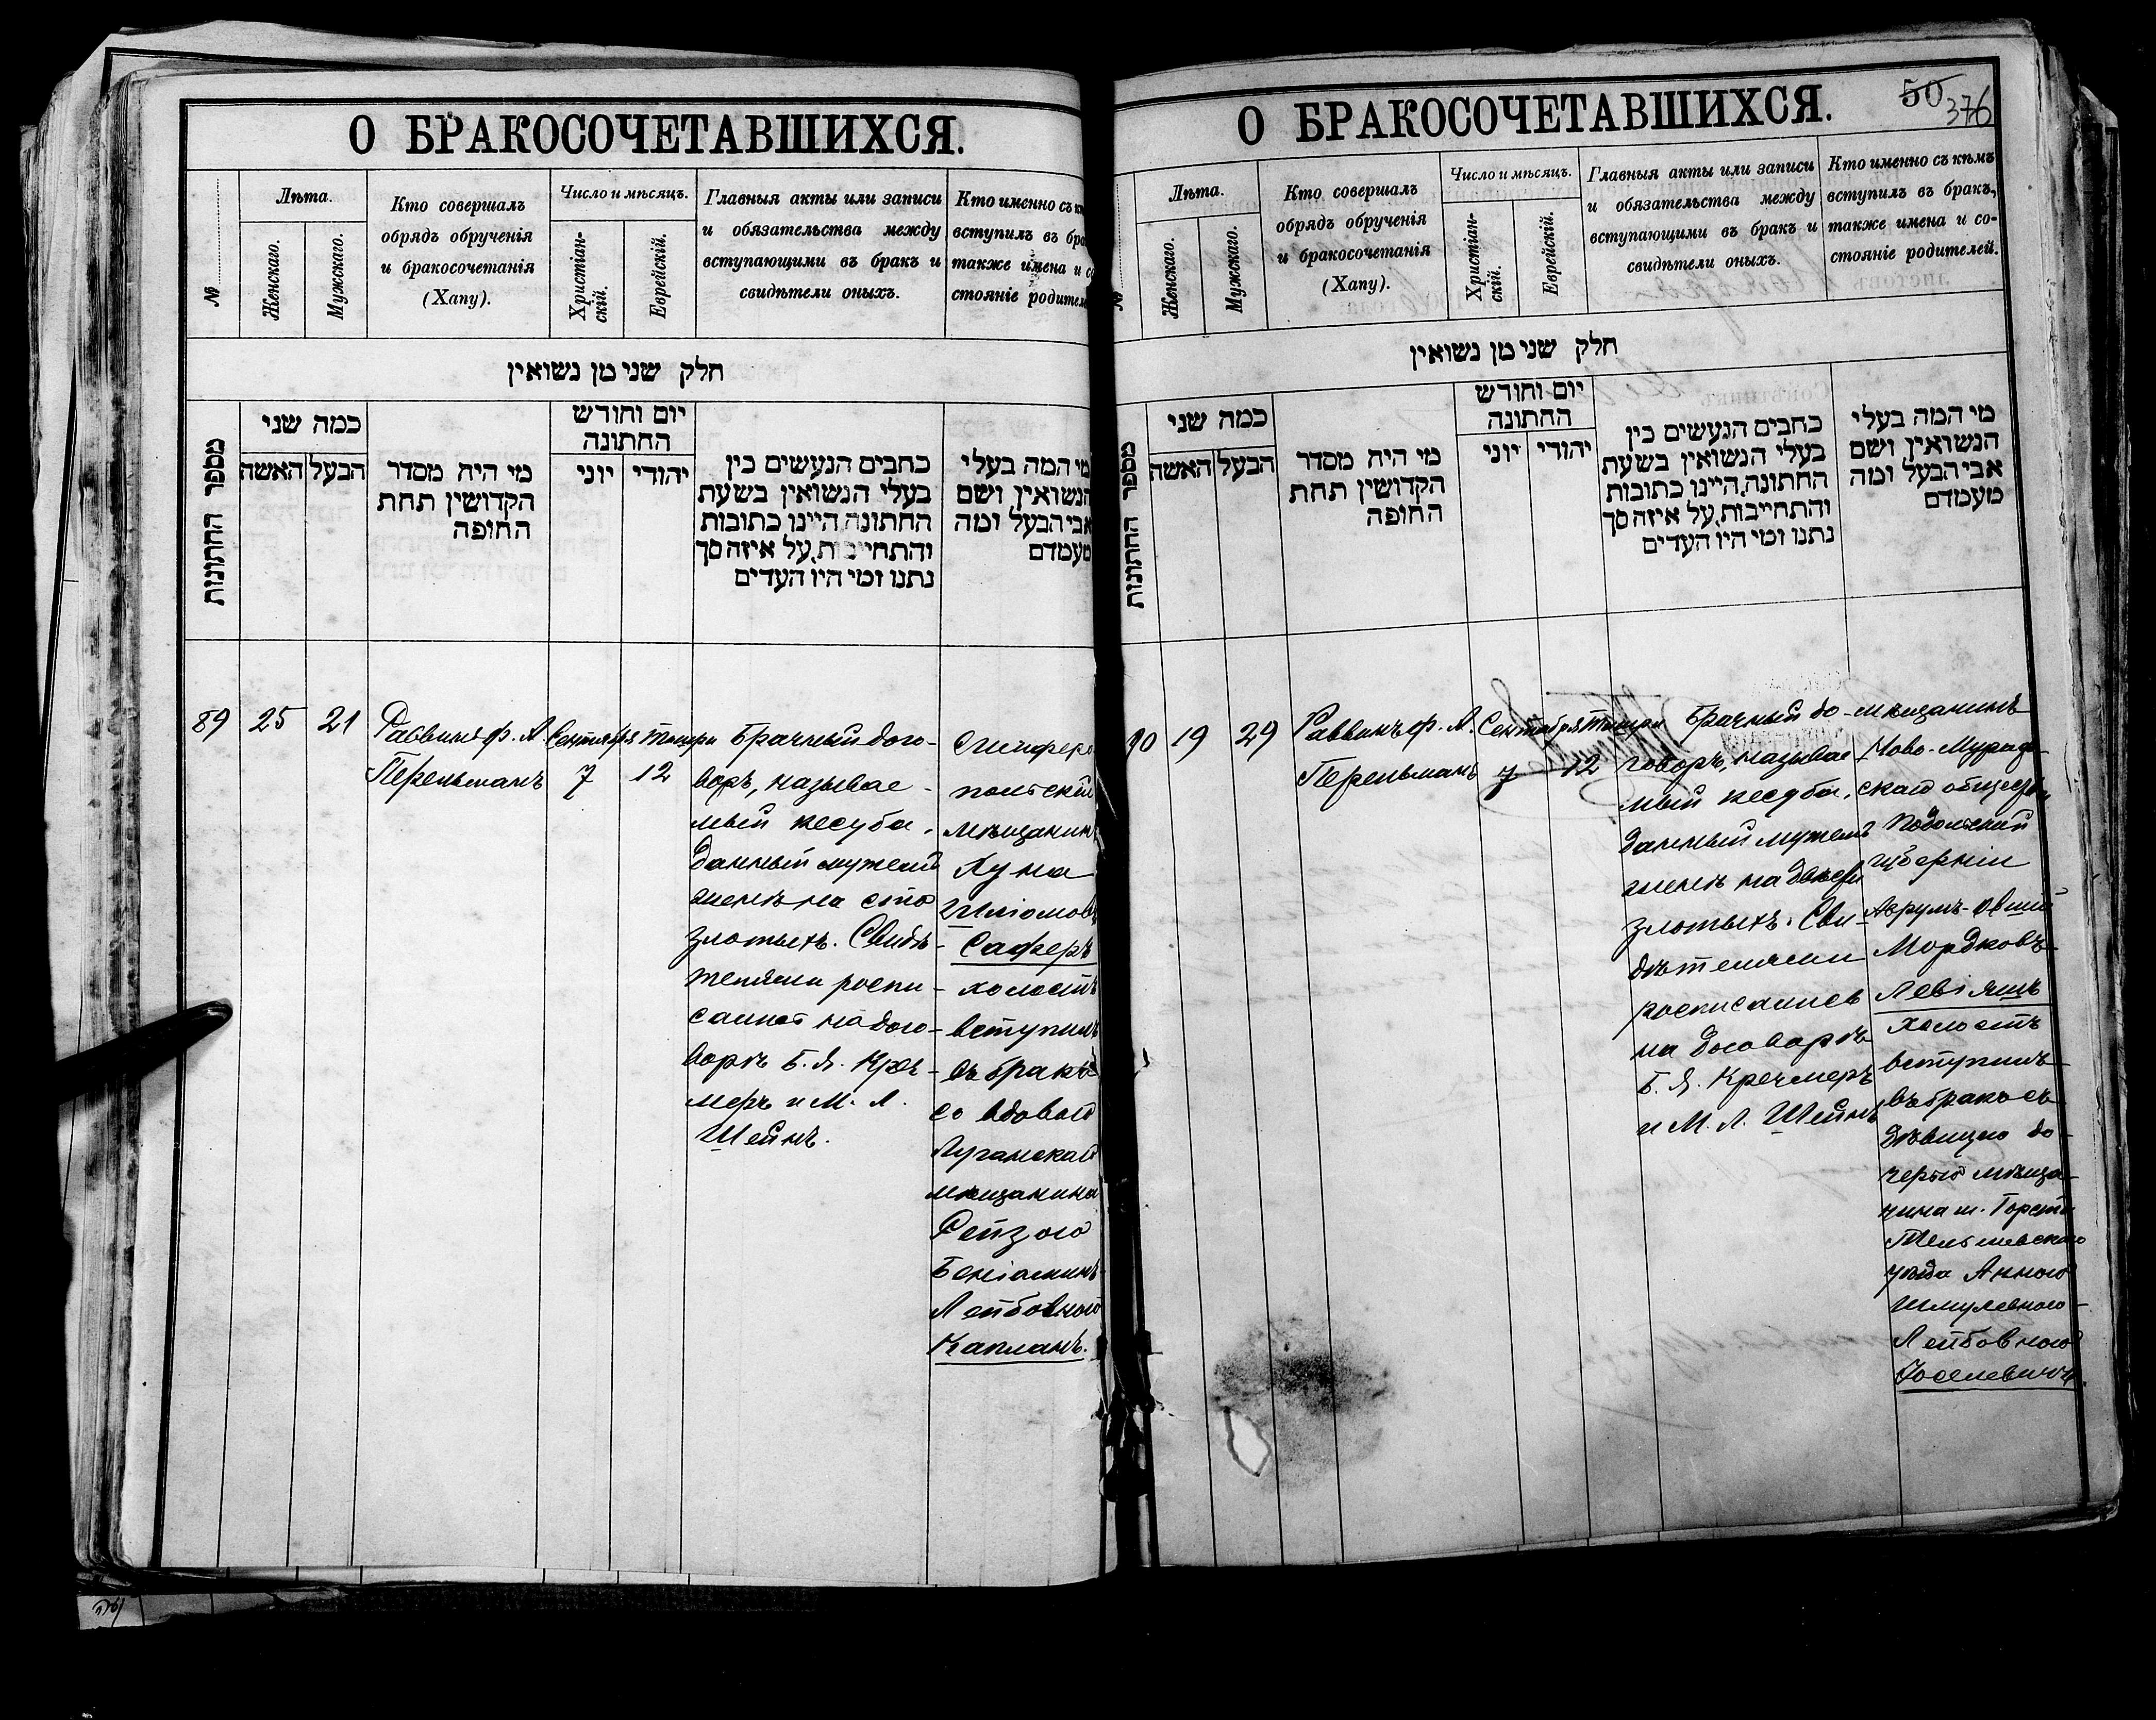 О БРАКОСОЧЕТАВШИХСЯ.
№
Лѣта.
Женскаго.
Мужскаго.
Кто совершалъ
обрядъ обрученія
и бракосочетанія
(Хапу).
Число и мѣсяцъ.
Христіан-
скій.
Еврейскій.
Главныя акты или записи
и обязательства между
вступающими въ бракъ и
свидѣтели оныхъ.
Кто именно съ
вступилъ въ бра
также имена и со
стояніе родител
חלק שני מן נשואין
מספר החתונות
כמה שני
הבעל האשה
מי היה מסדר
הקדושין תחת
החופה
יום וחודש
החתונה
יהודי יוני
כתבים הנעשים בין
בעלי הנשואין בשעת
החתונה היינו כתובות
והתחייבות, על איזה סך
נתנו ומי היו העדים
מי המה בעלי
הנשואין ושם
אבי הבעל ומה
מעמדם
89
25
21
Раввинъ Ф. А.
Перельманъ
Сентября
7
Тишри
12
Брачный дого-
воръ, называе-
мый кесуба,
данный мужемъ
женѣ на сто
злотыхъ. Свидѣ-
телями роспи-
сались на дого-
ворѣ Б. Я. Креч-
меръ и М. Л.
Шейнъ.
Симферо
польскій
мѣщанинъ
Хуна
Шліомовъ
Саферъ
холостъ
вступилъ
въ бракъ
со вдовой
Луганской
мѣщанина
Рейзою
Беніаминъ-
Лейбовной
Капланъ.
О БРАКОСОЧЕТАВШИХСЯ.
50
376
№
Лѣта.
Женскаго.
Мужскаго.
Кто совершалъ
обрядъ обрученія
и бракосочетанія
(Хапу).
Число и мѣсяцъ.
Христіан-
скій.
Еврейскій.
Главныя акты или записи
и обязательства между
вступающими въ бракъ и
свидѣтели оныхъ.
Кто именно съ кѣмъ
вступилъ въ бракъ,
также имена и со-
стояніе родителей.
חלק שני מן נשואין
מספר החתונות
כמה שני
הבעל האשה
מי היה מסדר
הקדושין תחת
החופה
יום וחודש
החתונה
יהודי יוני
כתבים הנעשים בין
בעלי הנשואין בשעת
החתונה, היינו כתובות
והתחייבות, על איזה סך
נתנו ומי היו העדים
מי המה בעלי
הנשואין ושם
אבי הבעל ומה
מעמדם
90
19
29
Раввинъ Ф. А.
Перельманъ
Сентября
7
Тишри
12
Брачный до-
говоръ, называе
мый кесуба,
данный мужемъ
женѣ на двѣсти
злотыхъ. Сви-
дѣтелями
росписались
на договорѣ
Б. Я. Кречмеръ
и М. Л. Шейнъ
мѣщанинъ
Ново-Мураф-
скаго общества
Подольской
губерніи
Аврумъ-Овший
Мордковъ
Левіяшъ
холостъ
вступилъ
въ бракъ съ
дѣвицею до-
черью мѣща-
нина м. Горсты
Тельшевскаго
уѣзда Анною
Шмулевною-
Лейбовною
Іоселевичъ.